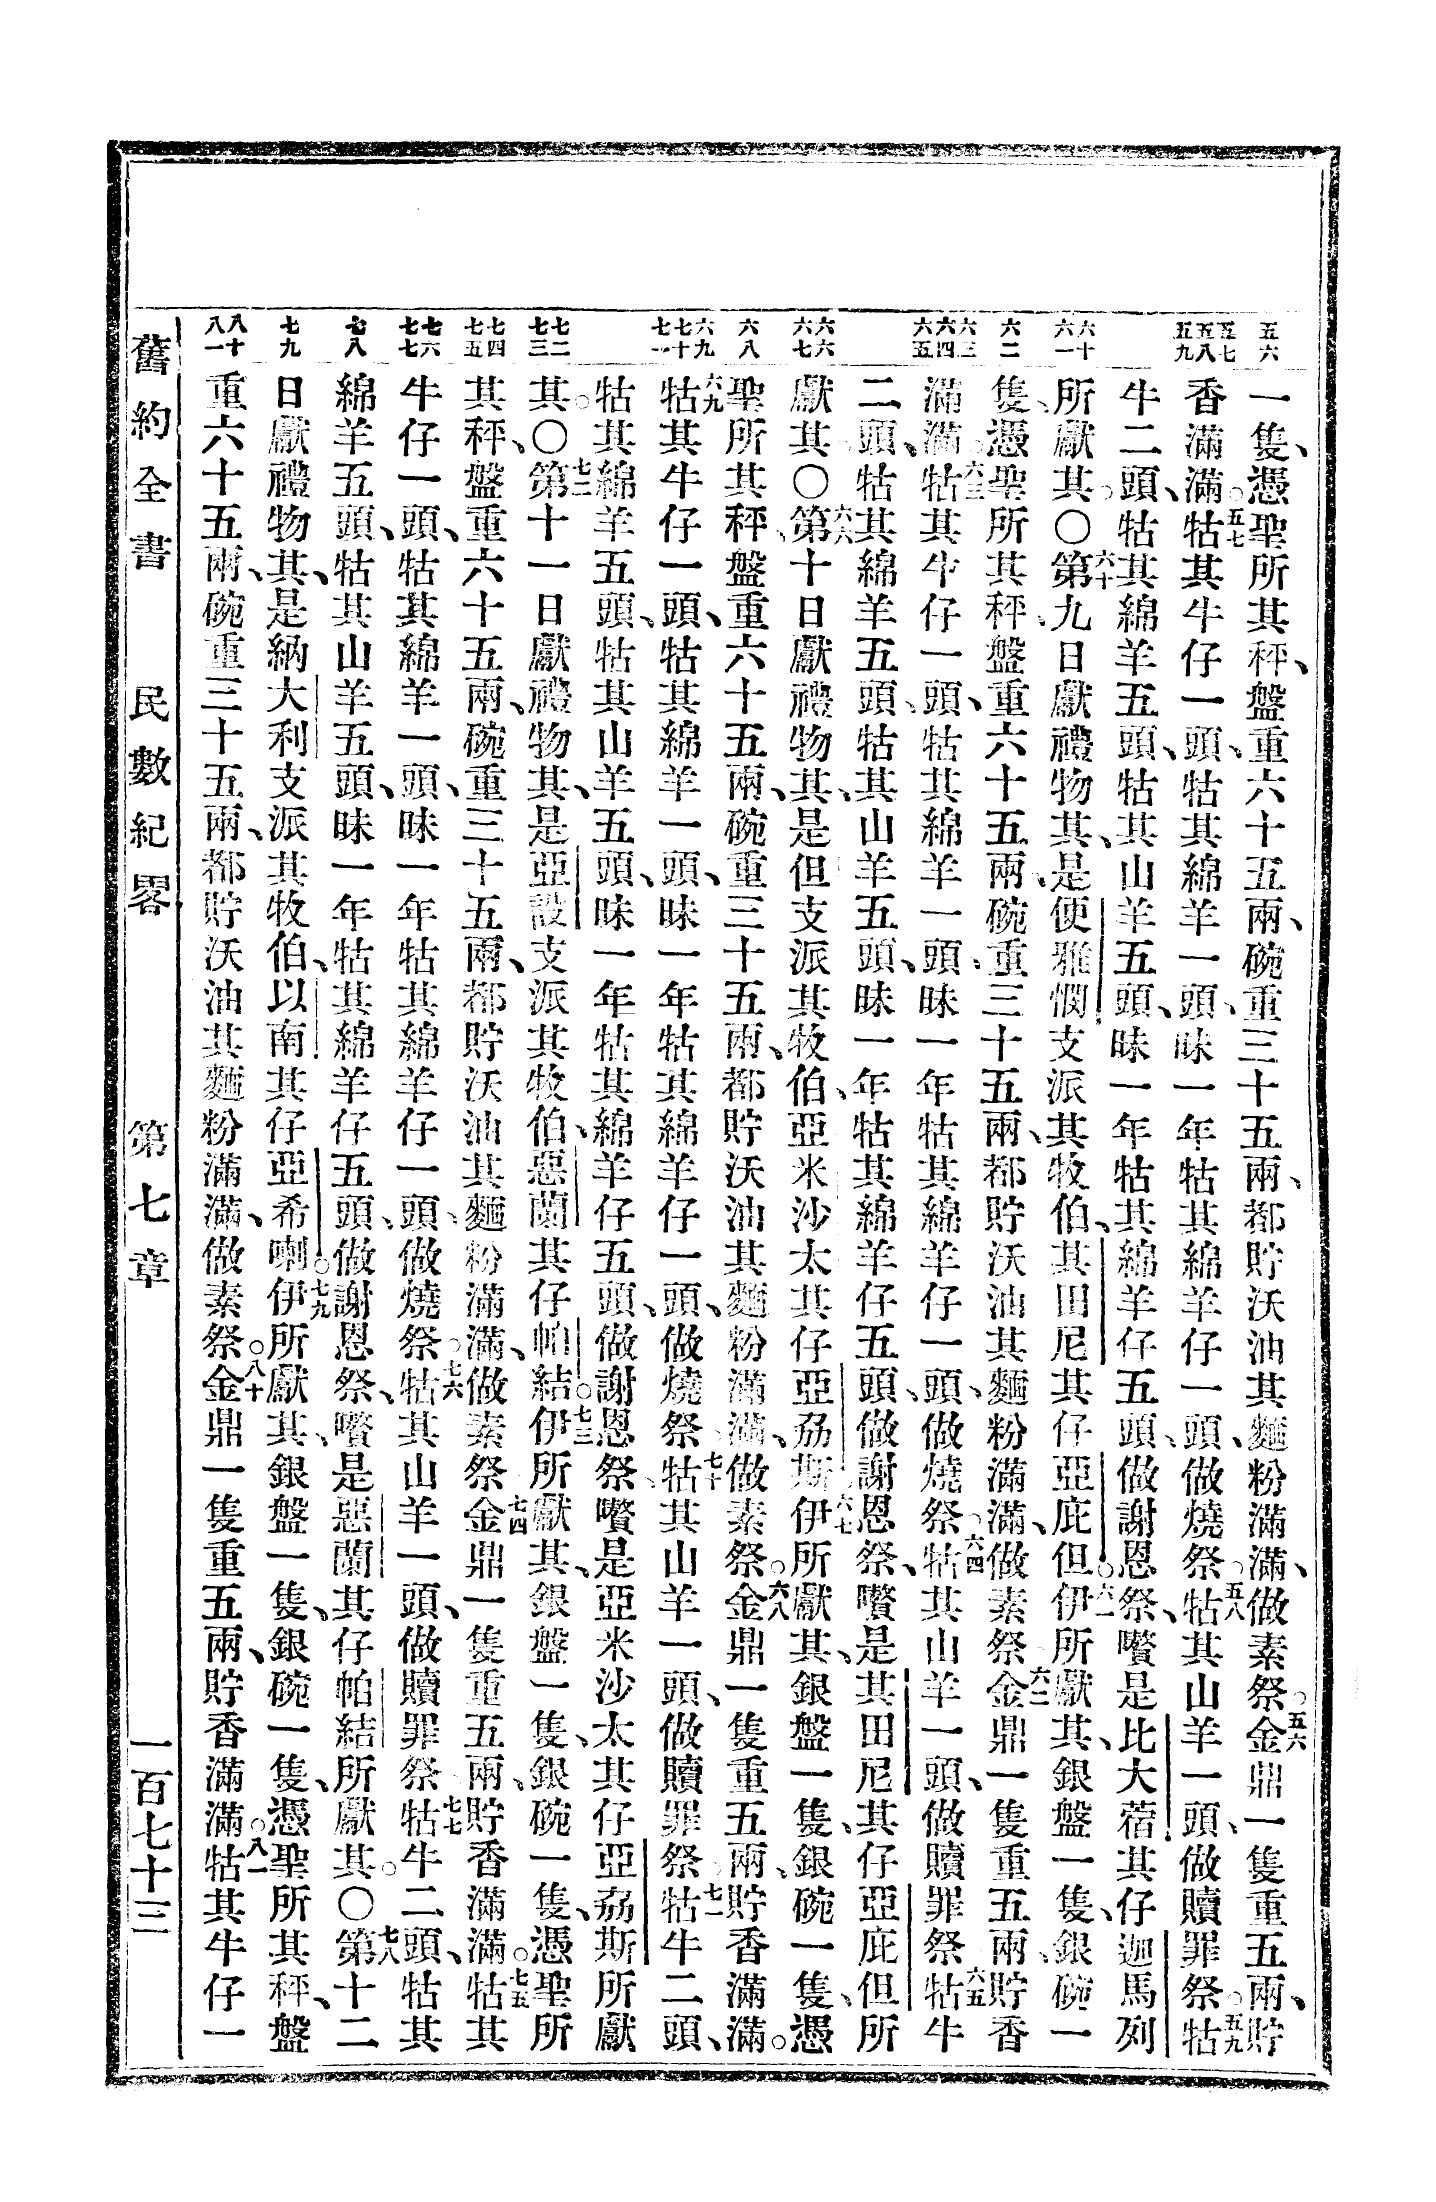 五六
五七 五八 五九
六十 六一
六二
六三 六四 六五
六六 六七
六八
六九 七十 七一
七二 七三
七四 七五
七六 七七
七八
七九
八十 八一
一隻、憑聖所其秤、盤重六十五兩、碗重三十五兩、都貯沃油其麵粉滿滿、做素祭。五六金鼎一隻重五兩、貯
香滿滿。五七牯其牛仔一頭、牯其綿羊一頭、昧一年牯其綿羊仔一頭、做燒祭。五八牯其山羊一頭、做贖罪祭。五九牯
牛二頭、牯其綿羊五頭、牯其山羊五頭、昧一年牯其綿羊仔五頭、做謝恩祭、嚽是比大蓿其仔迦馬列
所獻其。〇六十第九日獻禮物其、是便雅憫支派其牧伯、其田尼其仔亞庇但。六一伊所獻其、銀盤一隻、銀碗一
隻、憑聖所其秤、盤重六十五兩、碗重三十五兩、都貯沃油其麵粉滿滿、做素祭。六二金鼎一隻重五兩、貯香
滿滿。六三牯其牛仔一頭、牯其綿羊一頭、昧一年牯其綿羊仔一頭、做燒祭。六四牯其山羊一頭、做贖罪祭。六五牯牛
二頭、牯其綿羊五頭、牯其山羊五頭、昧一年牯其綿羊仔五頭、做謝恩祭、嚽是其田尼其仔亞庇但所
獻其。〇六六第十日獻禮物其、是但支派其牧伯、亞米沙太其仔亞劦斯。六七伊所獻其、銀盤一隻、銀碗一隻、憑
聖所其秤、盤重六十五兩、碗重三十五兩、都貯沃油其麵粉滿滿、做素祭。六八金鼎一隻重五兩、貯香滿滿。
六九牯其牛仔一頭、牯其綿羊一頭、昧一年牯其綿羊仔一頭、做燒祭。七十牯其山羊一頭、做贖罪祭。七一牯牛二頭、
牯其綿羊五頭、牯其山羊五頭、昧一年牯其綿羊仔五頭、做謝恩祭、嚽是亞米沙太其仔亞劦斯所獻
其。〇七二第十一日獻禮物其、是亞設支派其牧伯、惡蘭其仔帕結。七三伊所獻其、銀盤一隻、銀碗一隻、憑聖所
其秤、盤重六十五兩、碗重三十五兩、都貯沃油其麵粉滿滿、做素祭。七四金鼎一隻重五兩、貯香滿滿。七五牯其
牛仔一頭、牯其綿羊一頭、昧一年牯其綿羊仔一頭、做燒祭。七六牯其山羊一頭、做贖罪祭。七七牯牛二頭、牯其
綿羊五頭、牯其山羊五頭、昧一年牯其綿羊仔五頭、做謝恩祭、嚽是惡蘭其仔帕結所獻其。〇七八第十二
日獻禮物其、是納大利支派其牧伯、以南其仔亞希喇。七九伊所獻其、銀盤一隻、銀碗一隻、憑聖所其秤、盤
重六十五兩、碗重三十五兩、都貯沃油其麵粉滿滿、做素祭。八十金鼎一隻重五兩、貯香滿滿。八一牯其牛仔一
舊約全書 民數紀畧 第七章 一百七十三